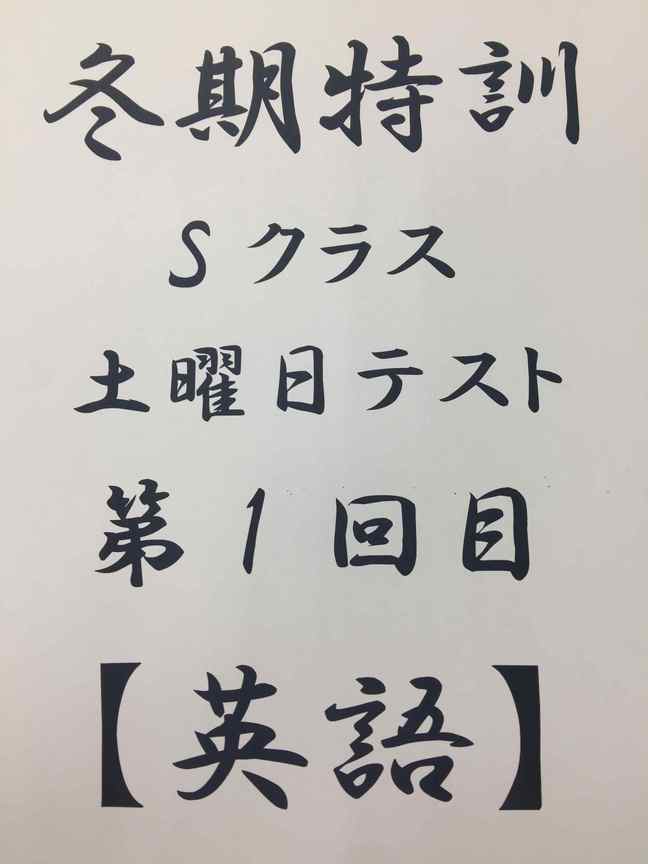 冬期特訓
Sクラス
土曜日テスト
第1回目
【英語】